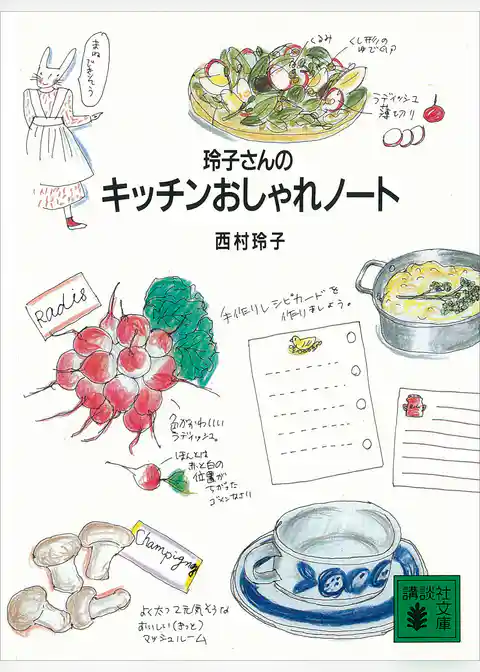 まねできそう
くるみ
くし形の
ゆでの
ラディッシュ
薄切り
玲子さんの
キッチンおしゃれノート
西村玲子
Radis
手作りレシピカードを
作りましょう。
色がかわいい
ラディッシュ。
ほんとは
赤と白の
位置が
ちがった
ゴメンなさい
Champigno
よく太って元気そうな
おいしい(きっと)
マッシュルーム
講談社
文庫